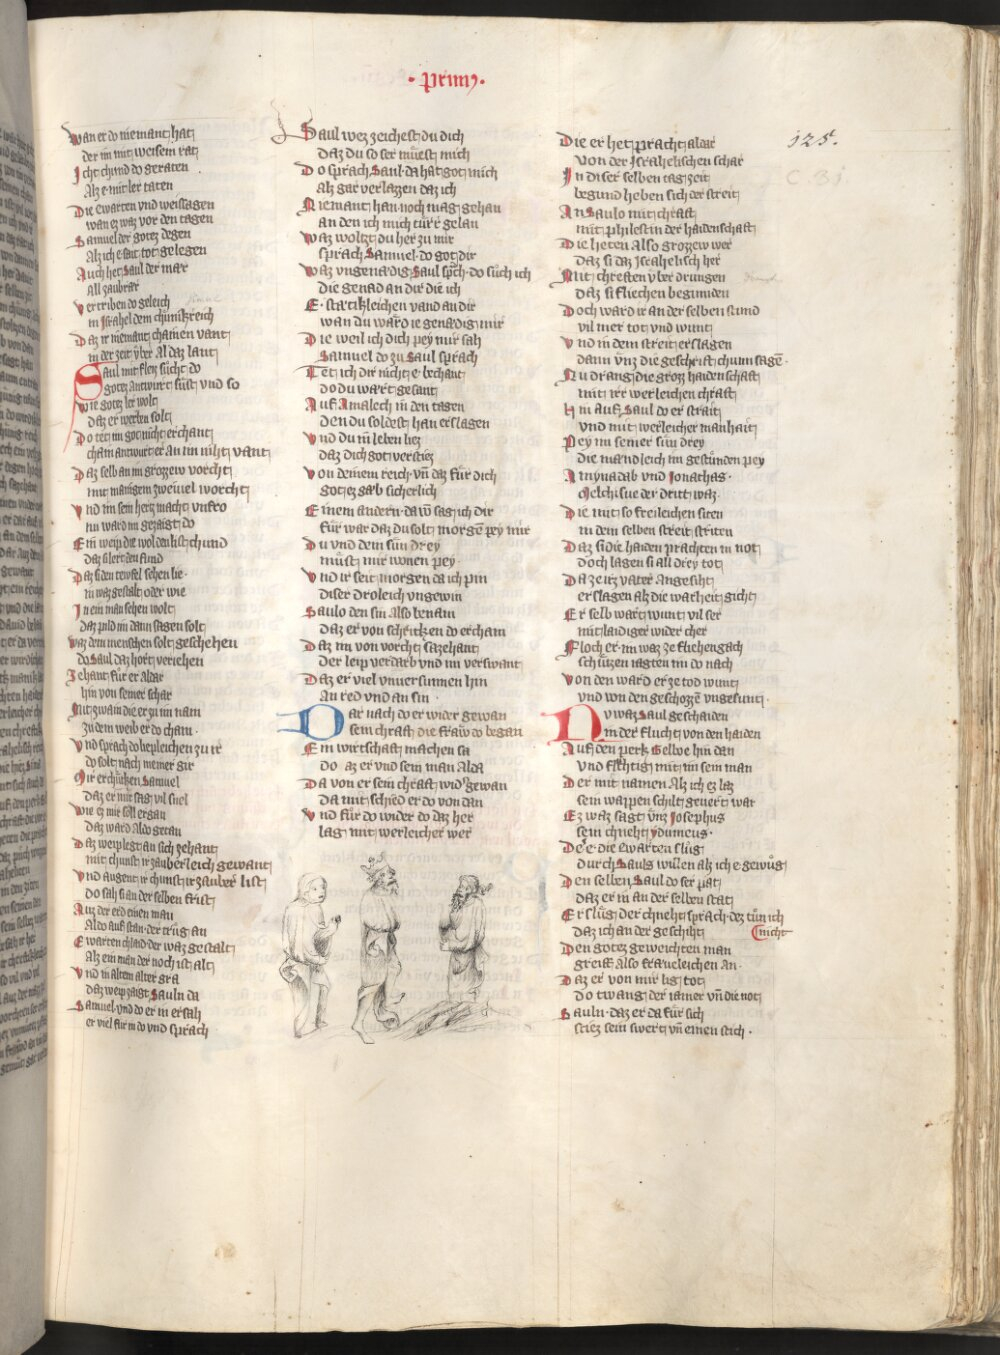 · Primꝰ ·
125.
Wan er do niemant hat
der im mit weisem rat
Icht chund do geraten
Alz e mit ler taten
Die ewarten vnd weissagen
wan ez waz vor den tagen
Samuel der gotez degen
Alz ich e sait tot gelegen
Auch het Saul der mar
All zaubrar
Vertriben do geleich
in Israhel dem chünikreich
Daz ir niemant chainen vant
in der zeit vber al daz lant
Saul mit flez sücht do
gotez antwurt süst vnd so
Wie gotez ler wolt
daz er werben solt
Do tet im got nicht erchant
chain antwurt er an im niht vant
Daz selb an im grozzew vorcht
mit manigem zweiuel worcht
Vnd im sein hertz macht vnfro
nu ward im gezaigt do
Ein weip die wol den list chund
daz si lert den fund
Daz si den tewfel sehen lie
in waz gestalt oder wie
In ein man sehen wolt
daz pild im dann sagen solt
Waz dem menschen solt geschehen
do Saul daz hort veriehen
Ze hant für er aldar
hin von seiner schar
Mit zwain die er zu im nam
zu dem weib er do cham
Vnd sprach do hepleichen zu ir
do solt nach meiner gir
Mir erchükken Samuel
daz er mir sag vil snel
Wie ez mir söll ergan
daz ward Aldo getan
Daz weip legt an sich zehant
mit chunst ir zauberleich gewant
Vnd augent ir chunst ir zauber list
do sah si an der selben frist
Auz der erd einen man
Aldo auf stan der trüg an
Ewarten chlaid er waz gestalt
Alz ein man der noch ist alt
Vnd in altem alter gra
daz weip zaigt Sauln da
Samuel vnd do er in ersah
er viel für in do vnd sprach
Saul wez zeichest du dich
daz du so ser müest mich
Do sprach Saul da hat got mich
Alz gar verlazzen daz ich
Niemant han noch mag gehan
an den ich mich türr gelan
Waz woltzt du her zu mir
sprach Samuel do got dir
Waz vngenadig Saul sprch do süch ich
die genad an dir die ich
E stätikleichen vand an dir
wan du ward ie genadig mir
Die weil ich dich pey mir sah
Samuel do zu Saul sprach
Tet ich dir nicht e bechant
do du wart gesant
Auf Amalech in den tagen
den du soldest han erslagen
Vnd du in leben liez
daz dich got verstiez
Von deinem reich vnd daz für dich
got ez gab sicherlich
Einem andern dauid sag ich dir
für war daz du solt morgen pey mir
Du vnd dem sün drey
müst mir wonen pey
Vnd ir seit morgen da ich pin
diser droleich vngewin
Saulo den sin Also benam
daz er von schrikken do ercham
Daz im von vorcht sazehant
der leip verdarb vnd im verswant
Daz er viel vnuersunnen hin
An red vnd an sin
Dar nach do er wider gewan
sein chraft die fraw do began
Ein wirtschaft machen sa
do az er vnd sein man Alda
Da von er sein chraft wider gewan
da mit schied er do von dan
Vnd für do wider da zu her
lag mit werleicher wer
Die er het pracht aldar
Von der Israhelischen schar
In diser selben tag zeit
begund heben sich der streit
An Saulo mit chraft
mit philest in der haidenschaft
Die heten Also grozew wer
daz si daz Israhelisch her
Mit chreften vber drungen
daz si fliechen begunden
Doch ward ir an der selben stund
vil mer tot vnd wunt
Vnd in dem streit erslagen
dann vnz die geschrift chunn sagen
Nu drang die groz haidenschaft
mit irr werleichen chraft
Hin auf Saul do er strait
vnd mit werleicher manhait
Pey im seiner sün drey
die mandleich im gestünden pey
Amynadab vnd Jonathas
Melchisue der dritt waz
Die mit so freileichen siten
in dem selben streit striten
Daz si die haiden prachten in not
doch lagen si all drey tot
Da ze irz vater Angesiht
erslagen alz die warheit giht
Er selb wart wunt vil ser
mit laidiger wider cher
Floch er im waz ze fliehen gach
schüzen iagten im do nach
Von den ward er ze tod wunt
vnd von den geschozzen vngesunt
Nv waz Saul geschaiden
in der flucht von den haiden
Auf den perk Gelboe hin dan
vnd flühtig mit im sein man
Der mit namen Alz ich ez laz
sein wappen schilt geuert waz
Ez waz sagt vnz Josephus
sein chneht ydumeus
Der e die Ewarten slüg
durch Sauls willen alz ich e gewüg
Den selben Saul do ser pat
daz er in an der selben stat
Er slüg der chneht sprach dez tün ich
daz ich an der geschiht nicht
Den gotez geweichten man
greiff Also fraueleichen an
Daz er von mir lig tot
do twang der iamer vnd die not
Sauln daz er da für sich
stiez sein swert vnd einen stich